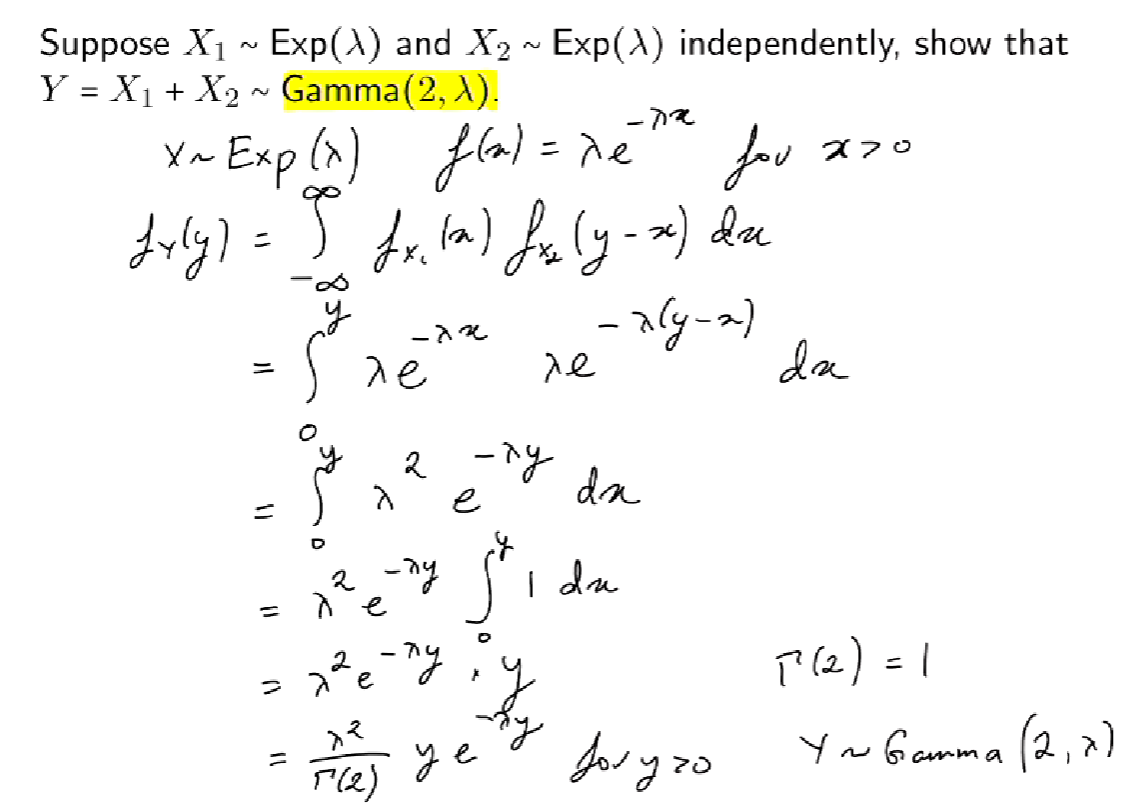 Suppose X₁ ~ Exp(λ) and X₂ ~ Exp(λ) independently, show that
Y = X₁ + X₂ ~ Gamma(2, λ).
X ~ Exp(λ) f(x) = λe^{-λx} for x>0
f_Y(y) = ∫_{-∞}^{∞} f_{X₁}(x) f_{X₂}(y-x) dx
= ∫_0^y λe^{-λx} λe^{-λ(y-x)} dx
= ∫_0^y λ² e^{-λy} dx
= λ² e^{-λy} ∫_0^y 1 dx
= λ² e^{-λy} . y Γ(2) = 1
= λ²/Γ(2) y e^{-λy} for y>0 Y ~ Gamma(2, λ)